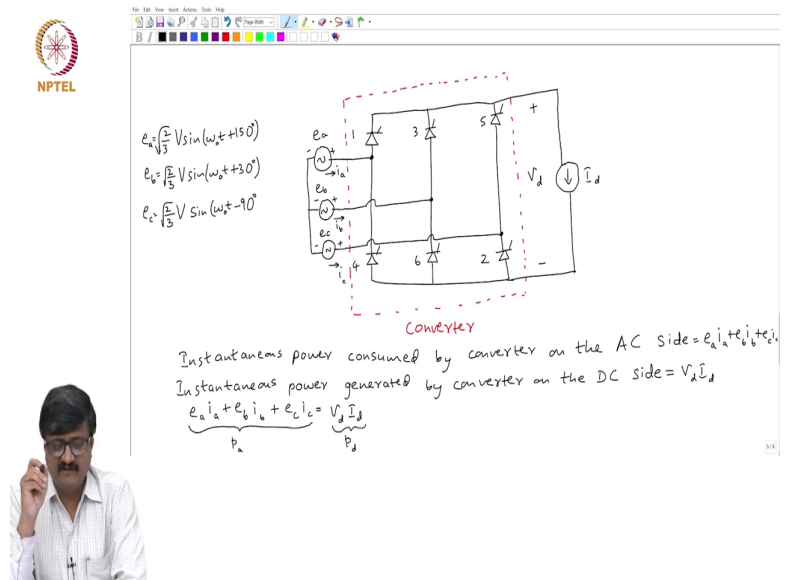 File Edit View Insert Actions Tools Help
Page Width
B I
NPTEL
e_a=√(2/3) Vsin(ω₀t+150°)
e_b=√(2/3) Vsin(ω₀t+30°)
e_c=√(2/3) V sin(ω₀t-90°
e_a
1
3
5
+
- +
→i_a
e_b
V_d
I_d
- +
→
i_b
e_c
- +
→i_c
4
6
2
-
Converter
Instantaneous power consumed by converter on the AC side = e_a i_a + e_b i_b + e_c i_c
Instantaneous power generated by converter on the DC side = V_d I_d
e_a i_a + e_b i_b + e_c i_c = V_d I_d
P_a
P_d
5/5